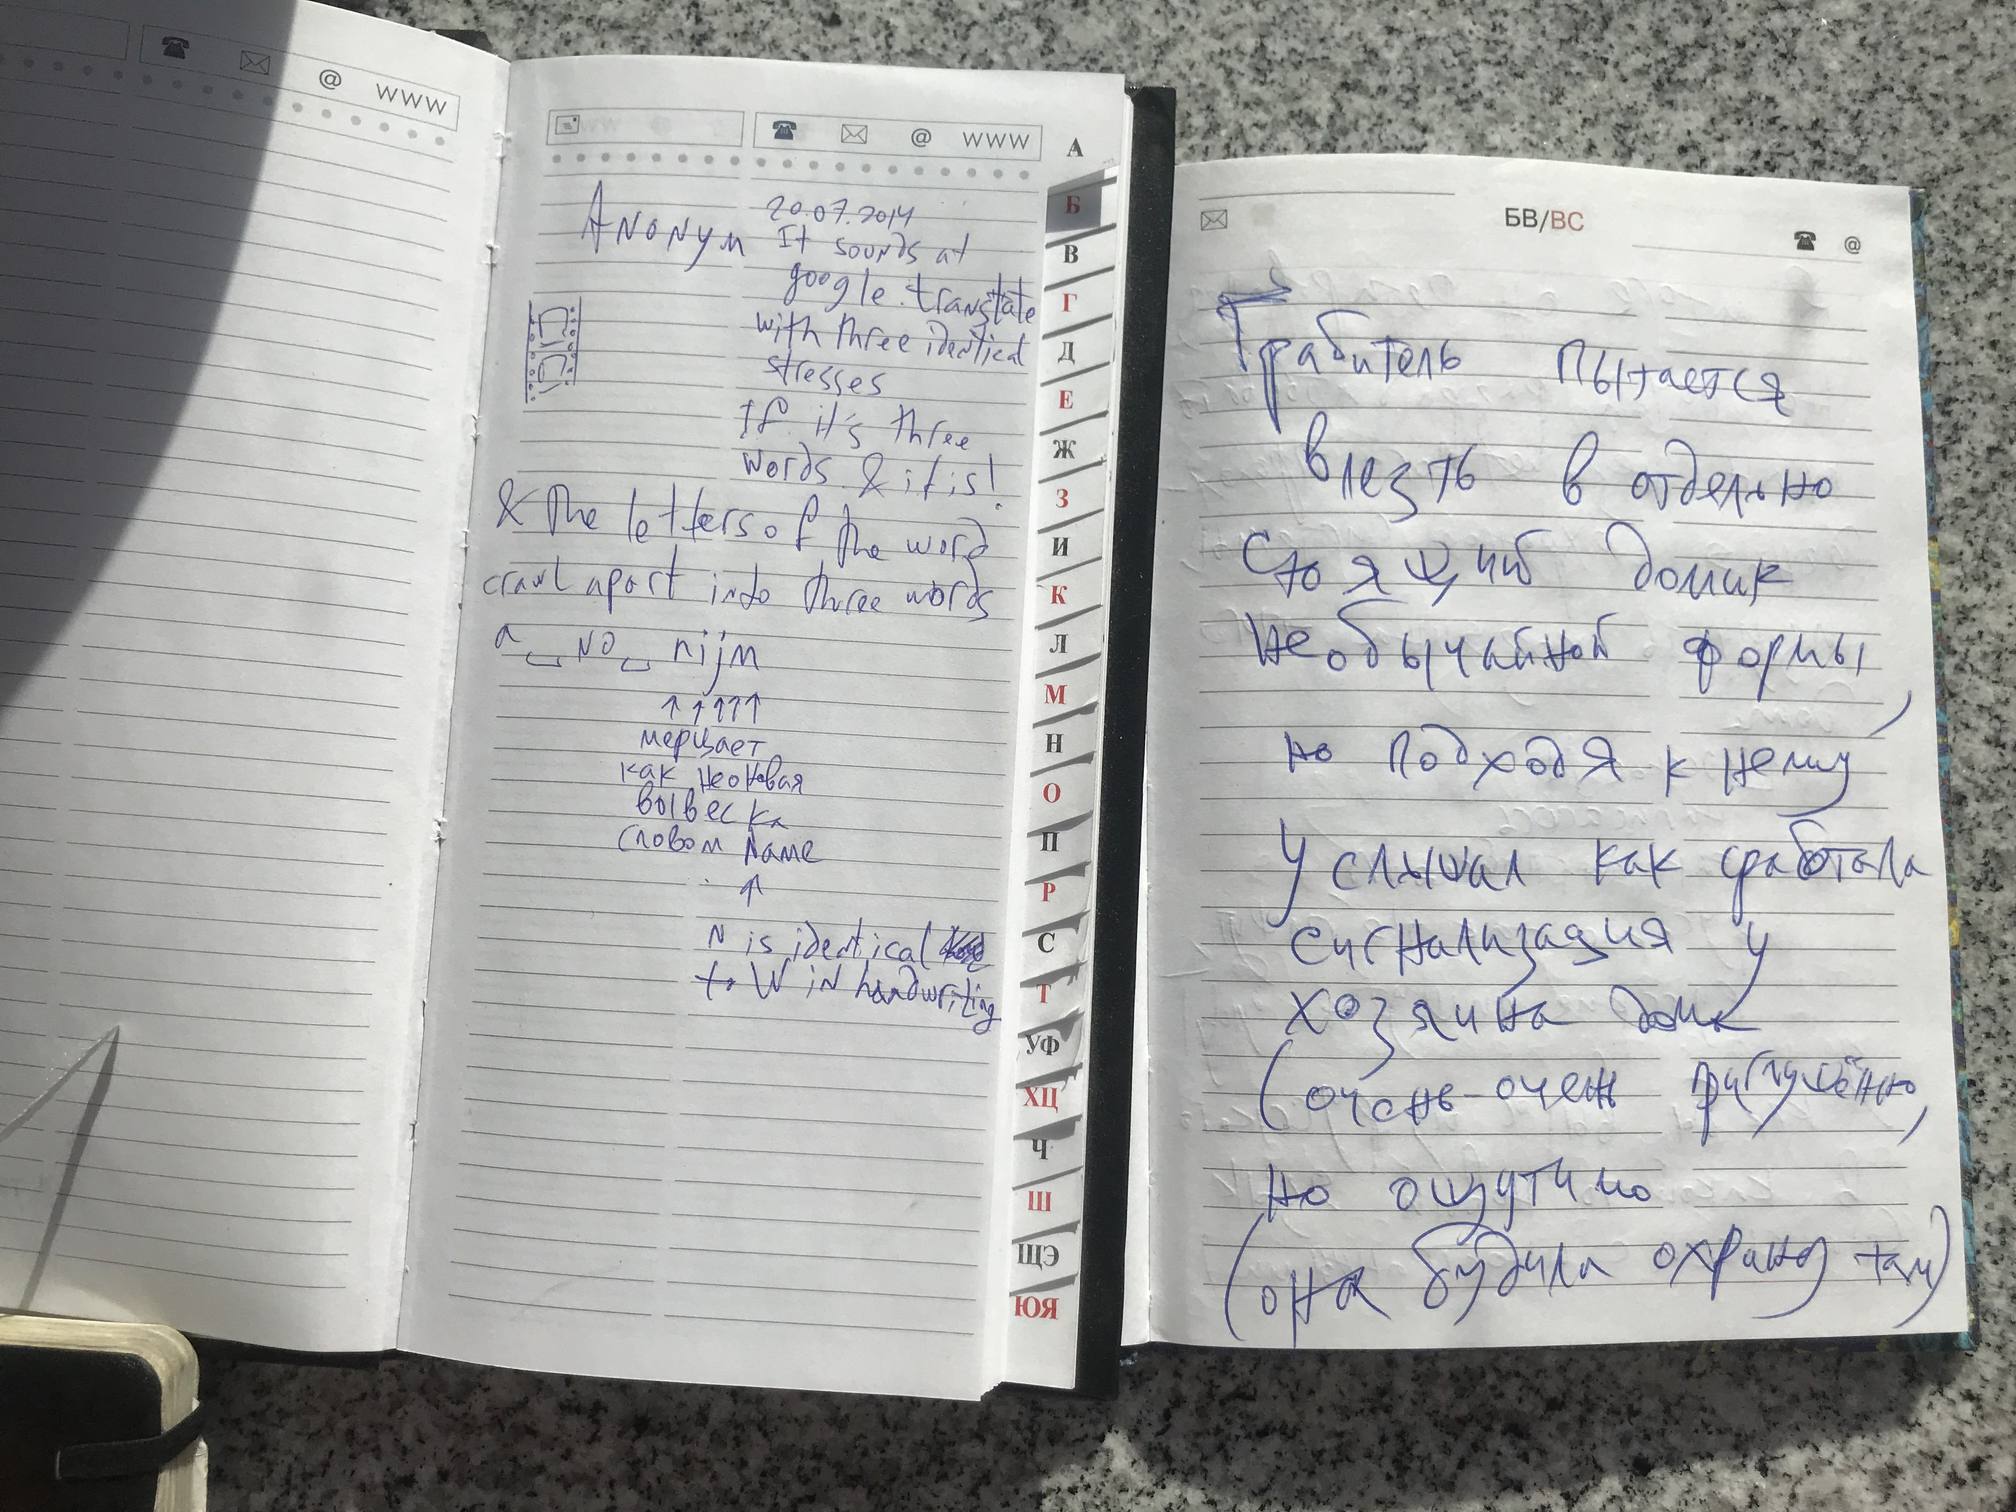 @ WWW
@ WWW
А
Б
В
Г
Д
Е
Ж
З
И
К
Л
М
Н
О
П
Р
С
Т
УФ
ХЦ
Ч
Ш
ЩЭ
ЮЯ
Anonym
20.07.2014
It sounds at
google.translate
with three identical
stresses
If it's three
words & it is!
& the letters of the word
crawl apart into three words
a␣no␣nijm
↑↑↑↑↑
мерцает
как неоновая
вывеска
словом name
↑
N is identical
to W in handwriting
БВ/ВС
@
Грабитель пытается
влезть в отдельно
стоящий домик
необычайной формы,
но подходя к нему
услышал как сработала
сигнализация у
хозяина дома
(очень-очень приглушённо,
но ощутимо
(она будила охрану там)